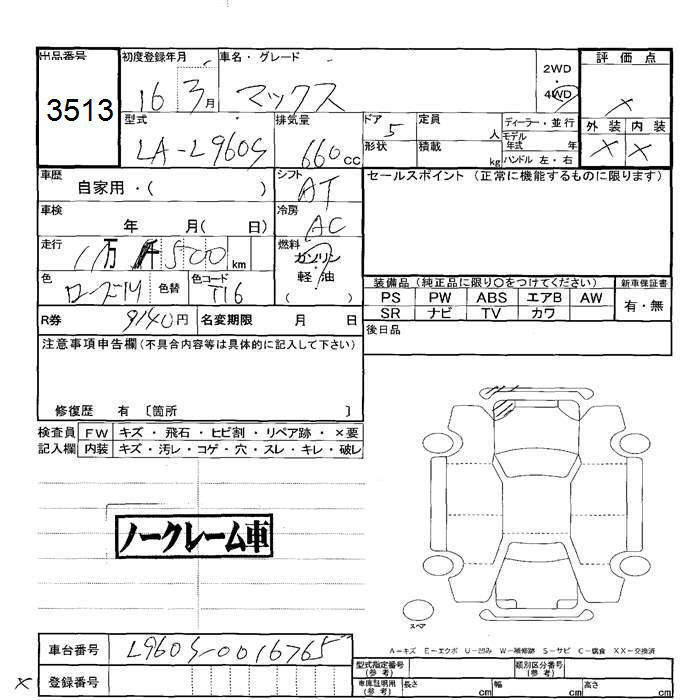 出品番号 初度登録年月 車名・グレード 2WD 評価点
3513 16 3月 マックス 4WD ×
型式 排気量 ドア 定員 ディーラー・並行 外装 内装
LA-L960S 660cc 5 人 モデル年式 年 × ×
形状 積載 kg ハンドル 左・右
車歴 シフト セールスポイント (正常に機能するものに限ります)
自家用・( ) AT
車検 冷房
年 月( 日) AC
走行 燃料
11万 千 500 km ガソリン
色 色替 色コード 軽・油 装備品 (純正品に限り○をつけてください) 新車保証書
T16 ( ) PS PW ABS エアB AW 有・無
SR ナビ TV カワ
R券 9140円 名変期限 月 日 後日品
注意事項申告欄(不具合内容等は具体的に記入して下さい)
修復歴 有 〔箇所 〕
検査員 FW キズ・飛石・ヒビ割・リペア跡・×要
記入欄 内装 キズ・汚レ・コゲ・穴・スレ・キレ・破レ
ノークレーム車
スペア
A-キズ E-エクボ U-凹み W-補修跡 S-サビ C-腐食 XX-交換済
車台番号 L960S-0016765
型式指定番号(参考) 類別区分番号(参考)
× 登録番号 車庫証明用(参考) 長さ cm 幅 cm 高さ cm